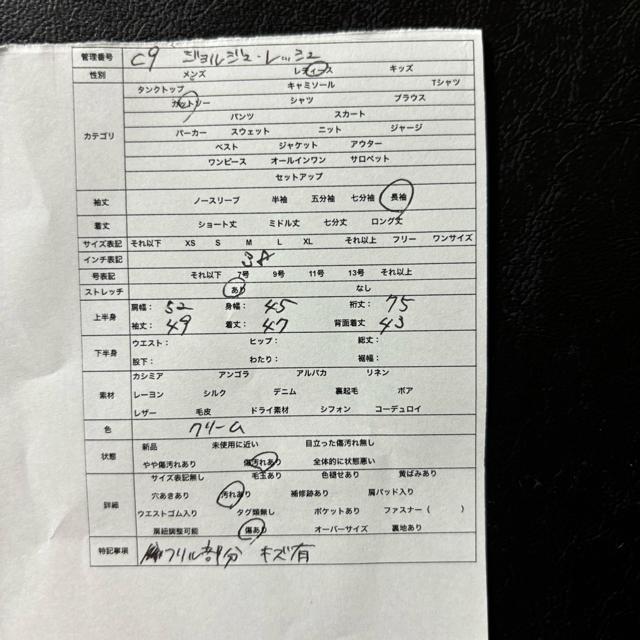 管理番号 C9 ジョルジュ・レッシュ
性別 メンズ レディース キッズ
タンクトップ キャミソール Tシャツ
カットソー シャツ ブラウス
パンツ スカート
カテゴリ パーカー スウェット ニット ジャージ
ベスト ジャケット アウター
ワンピース オールインワン サロペット
セットアップ
袖丈 ノースリーブ 半袖 五分袖 七分袖 長袖
着丈 ショート丈 ミドル丈 七分丈 ロング丈
サイズ表記 それ以下 XS S M L XL それ以上 フリー ワンサイズ
インチ表記 38
号表記 それ以下 7号 9号 11号 13号 それ以上
ストレッチ あり なし
上半身 肩幅： 52 身幅： 45 裄丈： 75
袖丈： 49 着丈： 47 背面着丈： 43
下半身 ウエスト： ヒップ： 総丈：
股下： わたり： 裾幅：
カシミア アンゴラ アルパカ リネン
素材 レーヨン シルク デニム 裏起毛 ボア
レザー 毛皮 ドライ素材 シフォン コーデュロイ
色 クリーム
状態 新品 未使用に近い 目立った傷汚れ無し
やや傷汚れあり 傷汚れあり 全体的に状態悪い
サイズ表記無し 毛玉あり 色褪せあり 黄ばみあり
詳細 穴あきあり 汚れあり 補修跡あり 肩パッド入り
ウエストゴム入り タグ類無し ポケットあり ファスナー（ ）
肩紐調整可能 傷あり オーバーサイズ 裏地あり
特記事項 フリル部分 キズ有